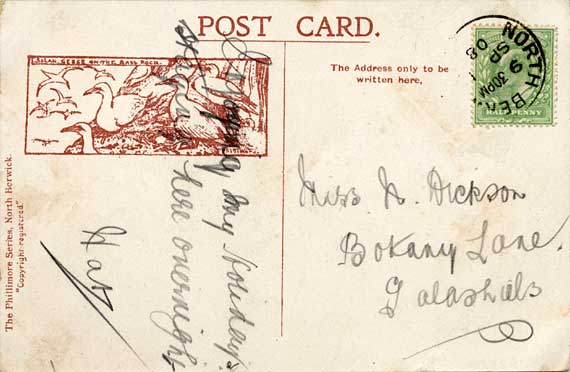 POST CARD.
SOLAN GEESE ON THE BASS ROCK.
The Address only to be
written here.
NORTH BER
9
SP
08
HALFPENNY
Enjoying my Holidays
here overnight
Miss N. Dickson
Botany Lane.
Galashiels
The Phillimore Series, North Berwick.
"Copyright-registered"